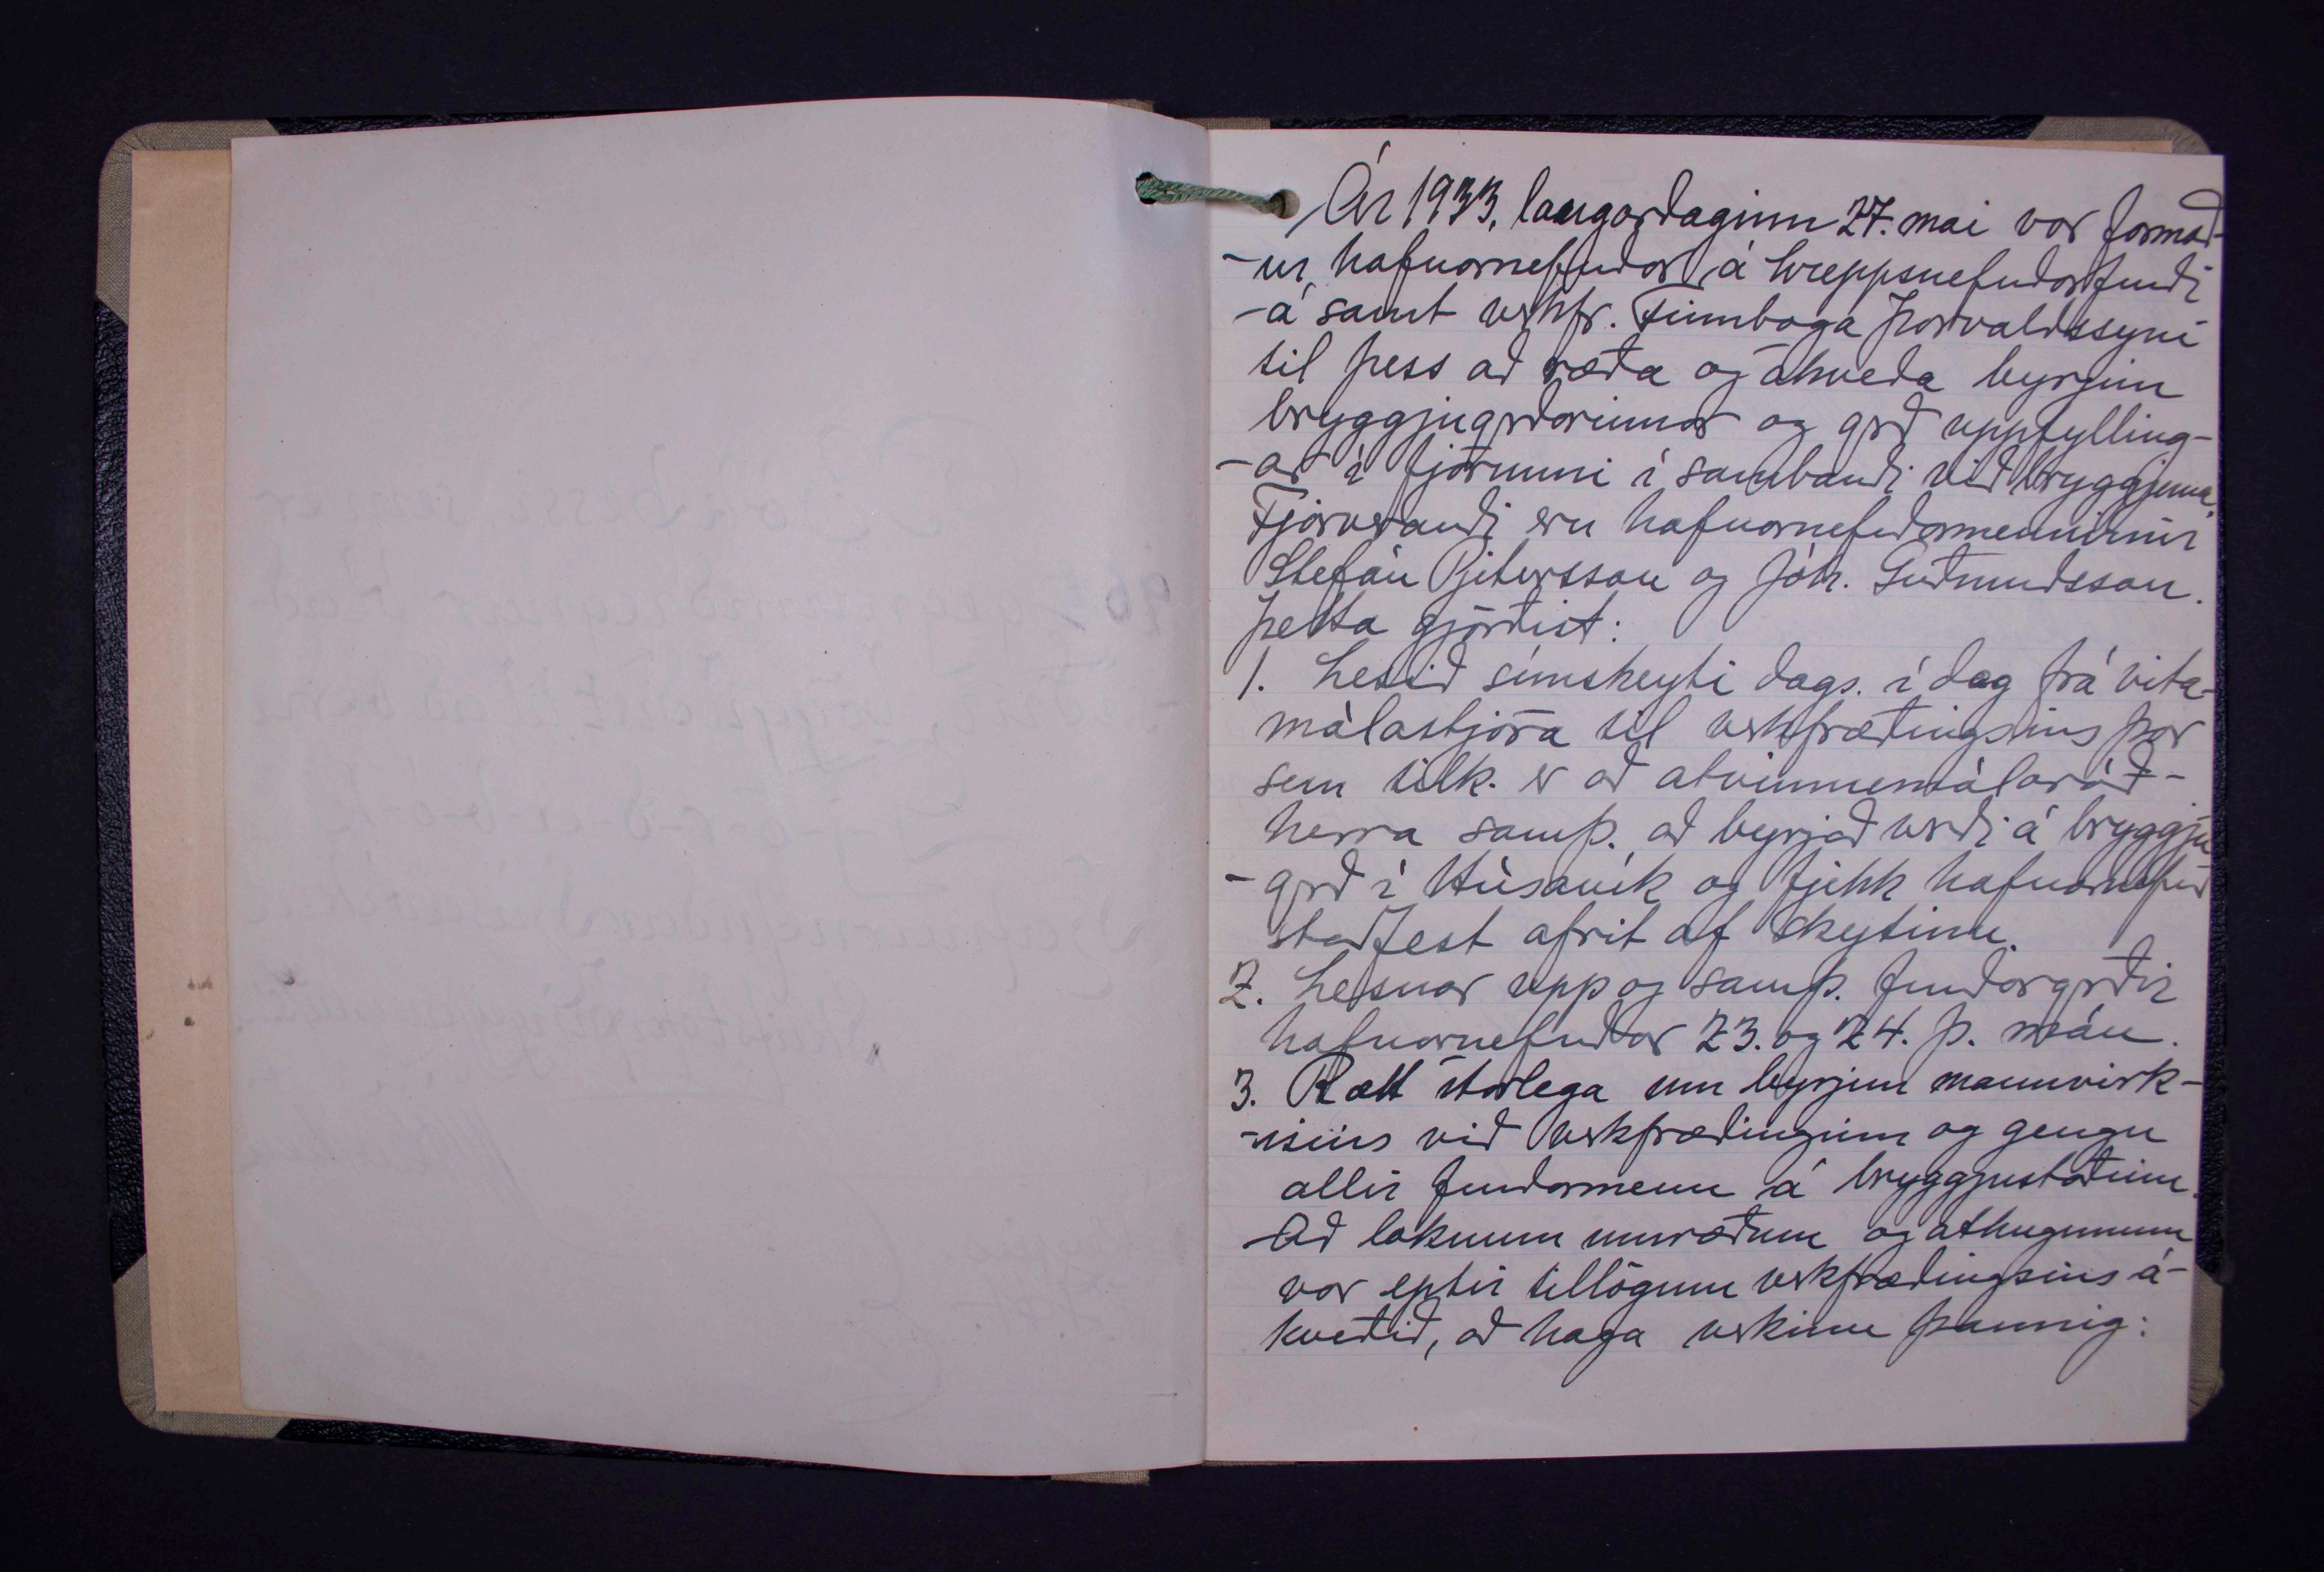 Ár 1933, laugardaginn 27. mai var formað-
-ur hafnarnefndar á hreppsnefndarfundi
-á samt verkfr. Finnboga Þorvaldssyni
til þess að ræða og ákveða byrjun
bryggjugrðarinnar og grð uppfylling-
-ar í fjörunni í sambandi við bryggjuna.
Fjarverandi eru hafnarnefndarmennirnir
Stefán Pjetursson og Jóh. Guðmundsson.
Þetta gjörðist:
1. Lesið símskeyti dags. í dag frá vita-
málastjóra til verkfræðingsins þar
sem tilk. er að atvinnumálaráð-
herra samþ. að byrjað verði á bryggju
-grð í Húsavík og fjekk hafnarnefnd
staðfest afrit af skeytinu.
2. Lesnar upp og samþ. fundargrðir
hafnarnefndar 23. og 24. þ. mán.
3. Rætt ítarlega um byrjun mannvirk-
-isins við verkfræðinginn og gengu
allir fundarmenn á bryggjustæðinu.
Að loknum umræðum og athugunum
var eptir tillögum verkfræðingsins á-
kveðið, að haga verkinu þannig: